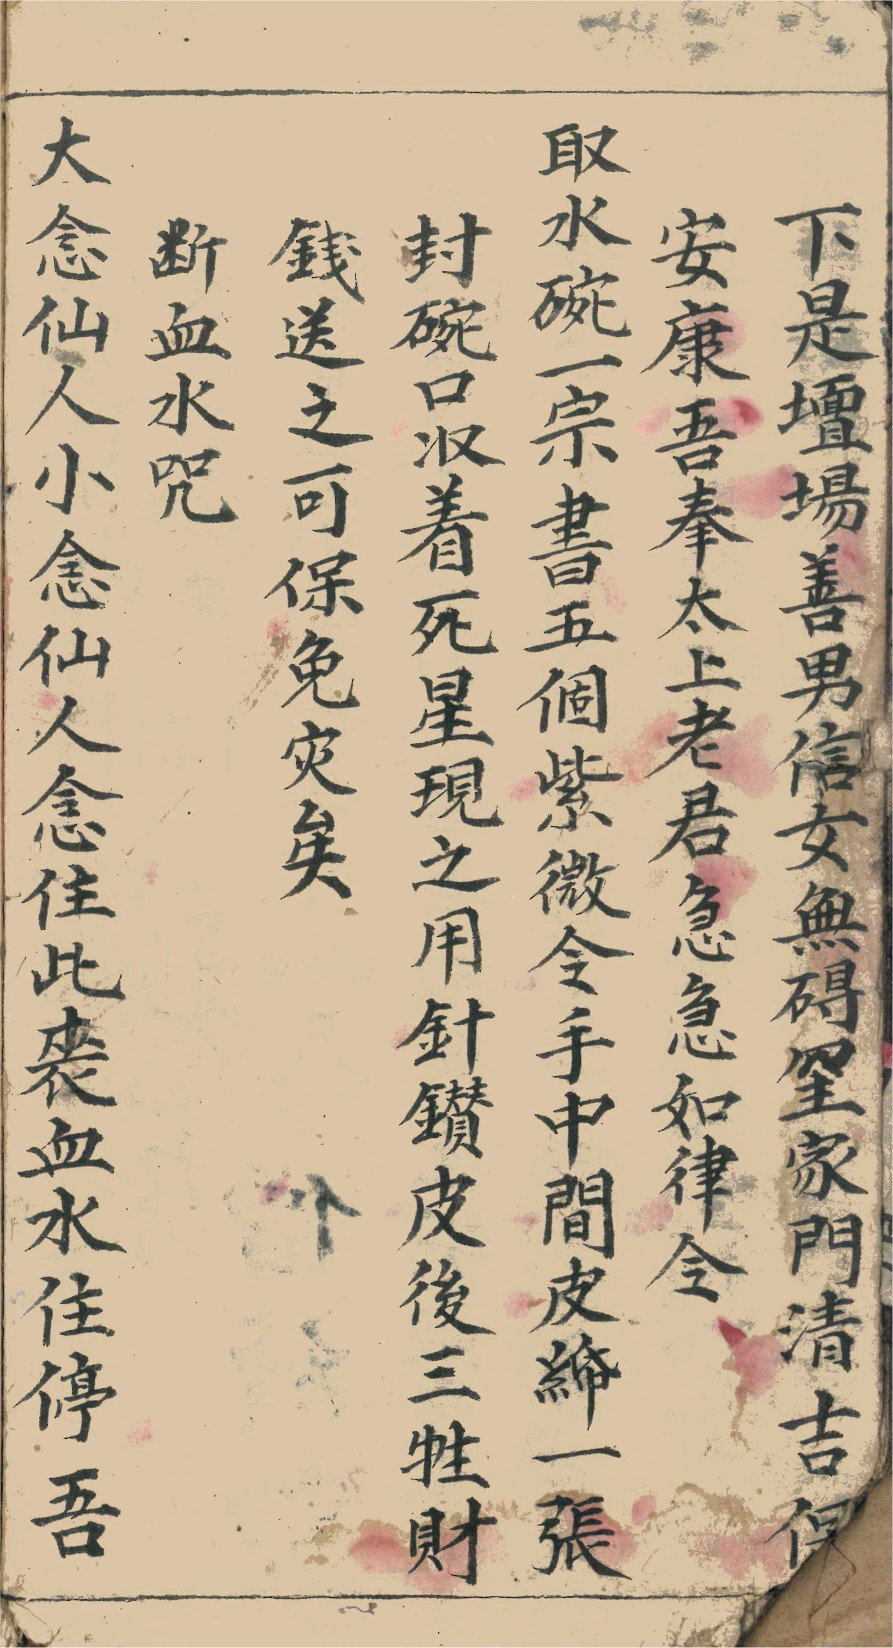 下是壇場善男信女無碍星家門清吉保
安康吾奉太上老君急急如律令
取水碗一宗書五個紫微令手中間皮綿一張
封碗口収着死星現之用針鑽皮後三牲財
銭送之可保免灾矣
断血水咒
大念仙人小念仙人念住此喪血水住停吾